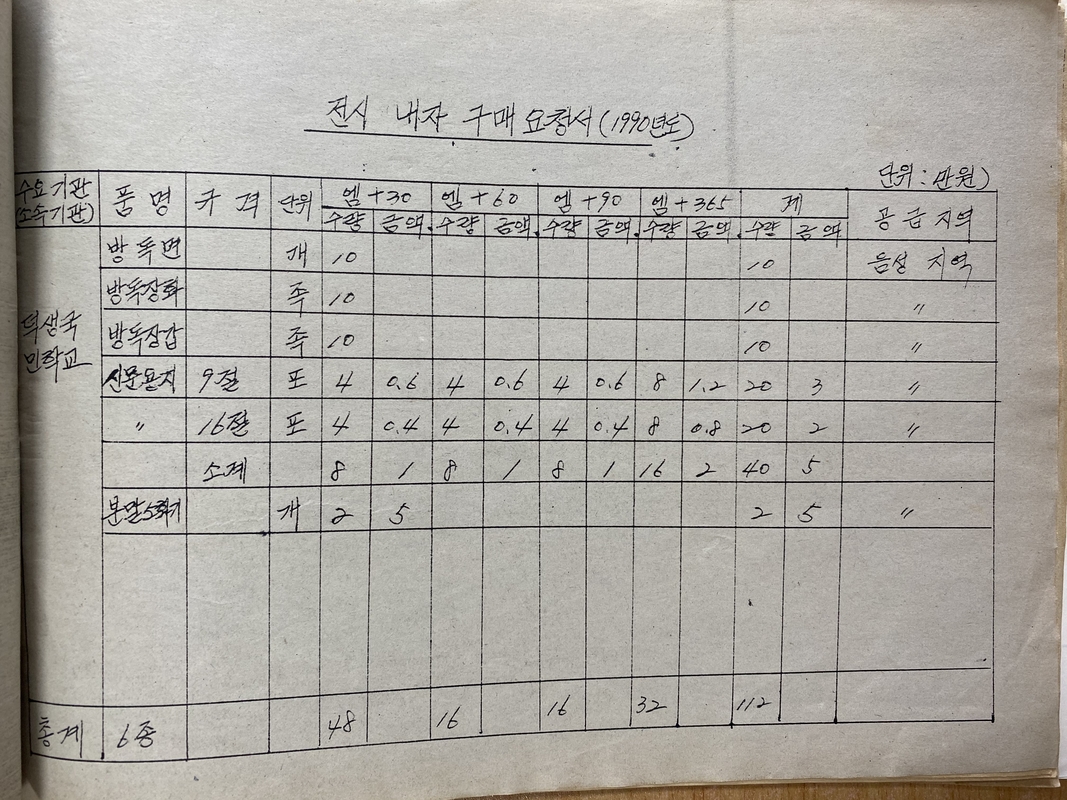 전시 내자 구매 요청서 (1990년도)
단위 : 만원)
수요기관 (소속기관) 품명 규격 단위 엠+30 엠+60 엠+90 엠+365 계 공급지역
수량 금액 수량 금액 수량 금액 수량 금액 수량 금액
방독면 개 10 10 음성 지역
방독장화 족 10 10 〃
덕생국민학교
방독장갑 족 10 10 〃
신문용지 9절 포 4 0.6 4 0.6 4 0.6 8 1.2 20 3 〃
〃 16절 포 4 0.4 4 0.4 4 0.4 8 0.8 20 2 〃
소계 8 1 8 1 8 1 16 2 40 5
분말소화기 개 2 5 2 5 〃
총계 6종 48 16 16 32 112